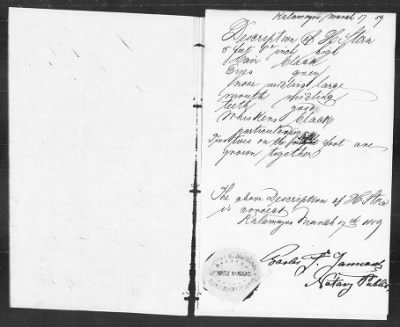 Kalamazoo, March 17 79
Description of H. Stern
5 feet inch high
Hair black
Eyes grey
nose midling large
mouth midling
teeth good
Whiskers black
particularity
Two toes on the foot are
grown together
The above Description of H. Stern
is correct
Kalamazoo March 17th 1879
Charles F.
Notary Public
NOTARY PUBLIC